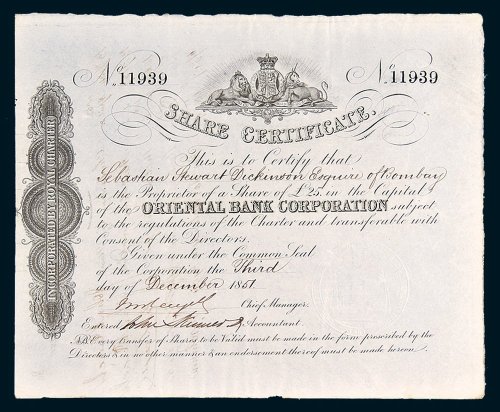 No. 11939
No. 11939
SHARE CERTIFICATE.
INCORPORATED BY ROYAL CHARTER
This is to Certify that
Sebastian Stewart Dickinson Esquire of Bombay
is the Proprietor of a Share of £25, in the Capital
of the ORIENTAL BANK CORPORATION subject
to the regulations of the Charter and transferable with
Consent of the Directors.
Given under the Common Seal
of the Corporation the Third
day of December 1851
Chief Manager.
Entered John Accountant
N.B. Every transfer of Shares to be Valid must be made in the form prescribed by the
Directors & in no other manner & an endorsement thereof must be made hereon.